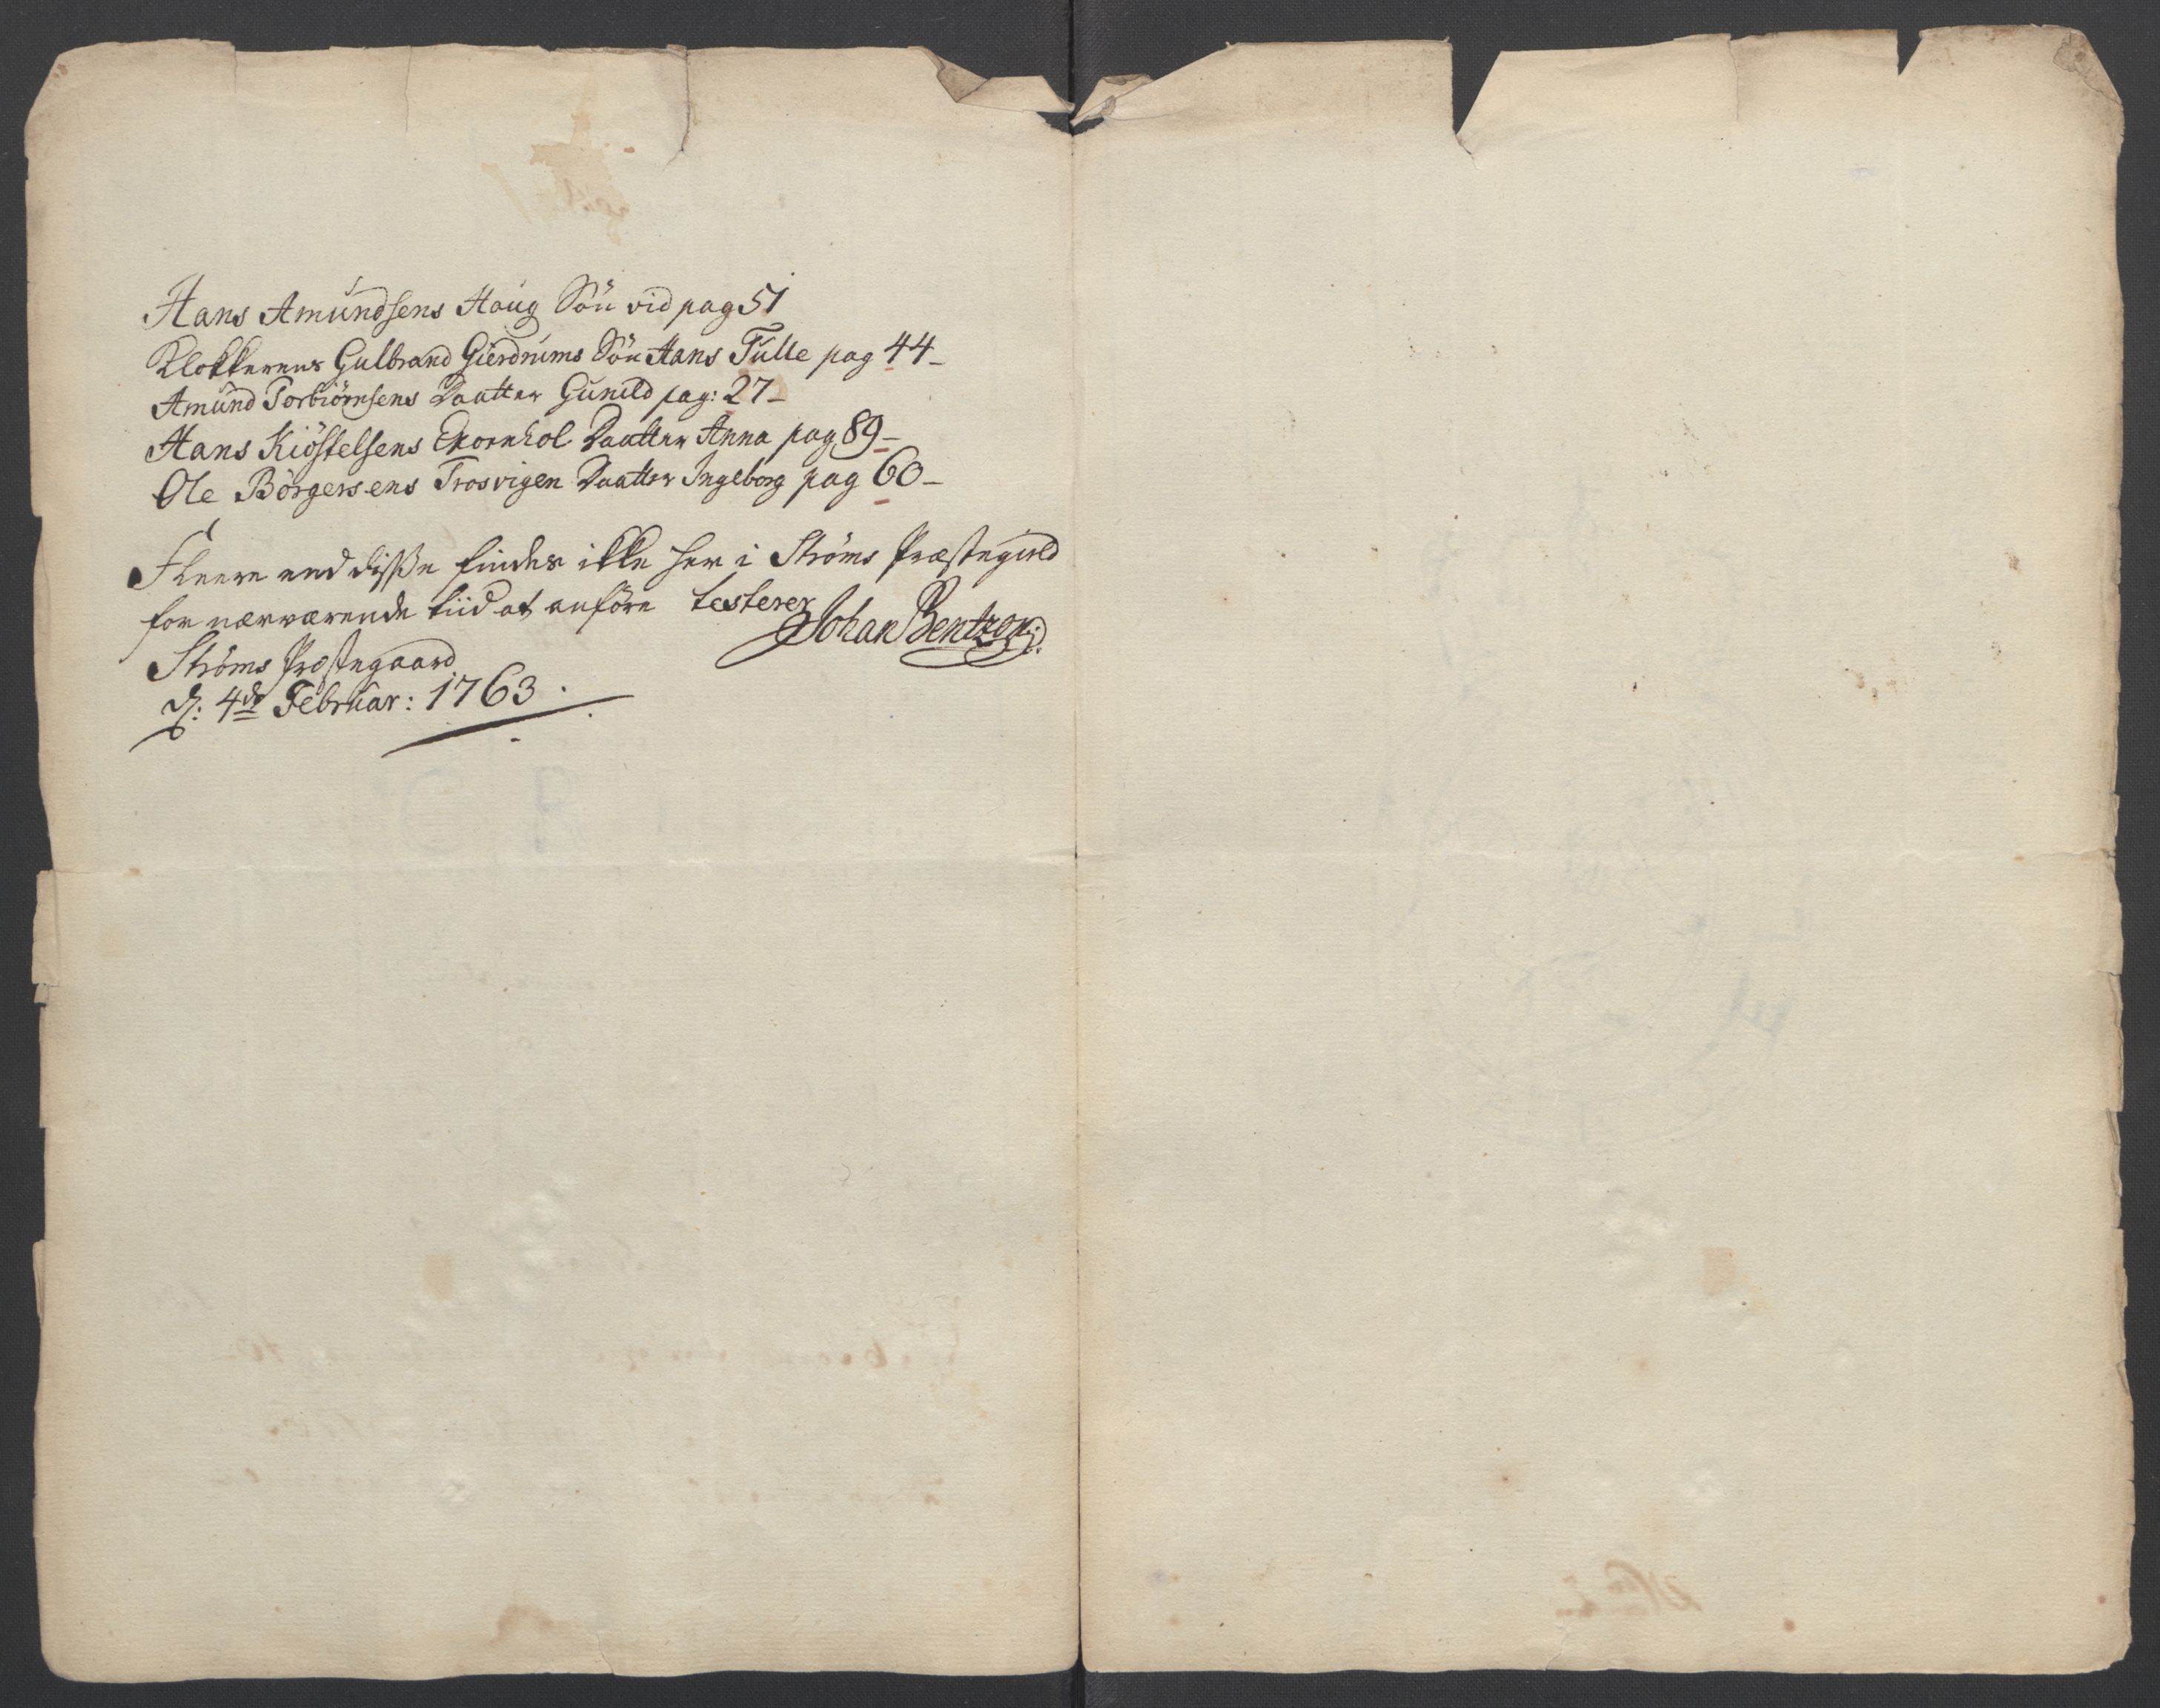 Hans Amundsens Haug Søn vid pag 51
Klokkerens Gulbrand Gierdrums Søn Hans Tulle pag 44 -
Amund Torbiørnsens Daatter Gunild pag: 27 -
Hans Kiøstelsens Ekornhol Daatter Anna pag 89 -
Ole Børgersens Trosvigen Daatter Ingeborg pag 60 -
Fleere end disse findes ikke her i Strøms Præstegield
for nærværende tiid at anføre testerer
Johan Bentzon
Strøms Præstegaard
d: 4de Februar: 1763.